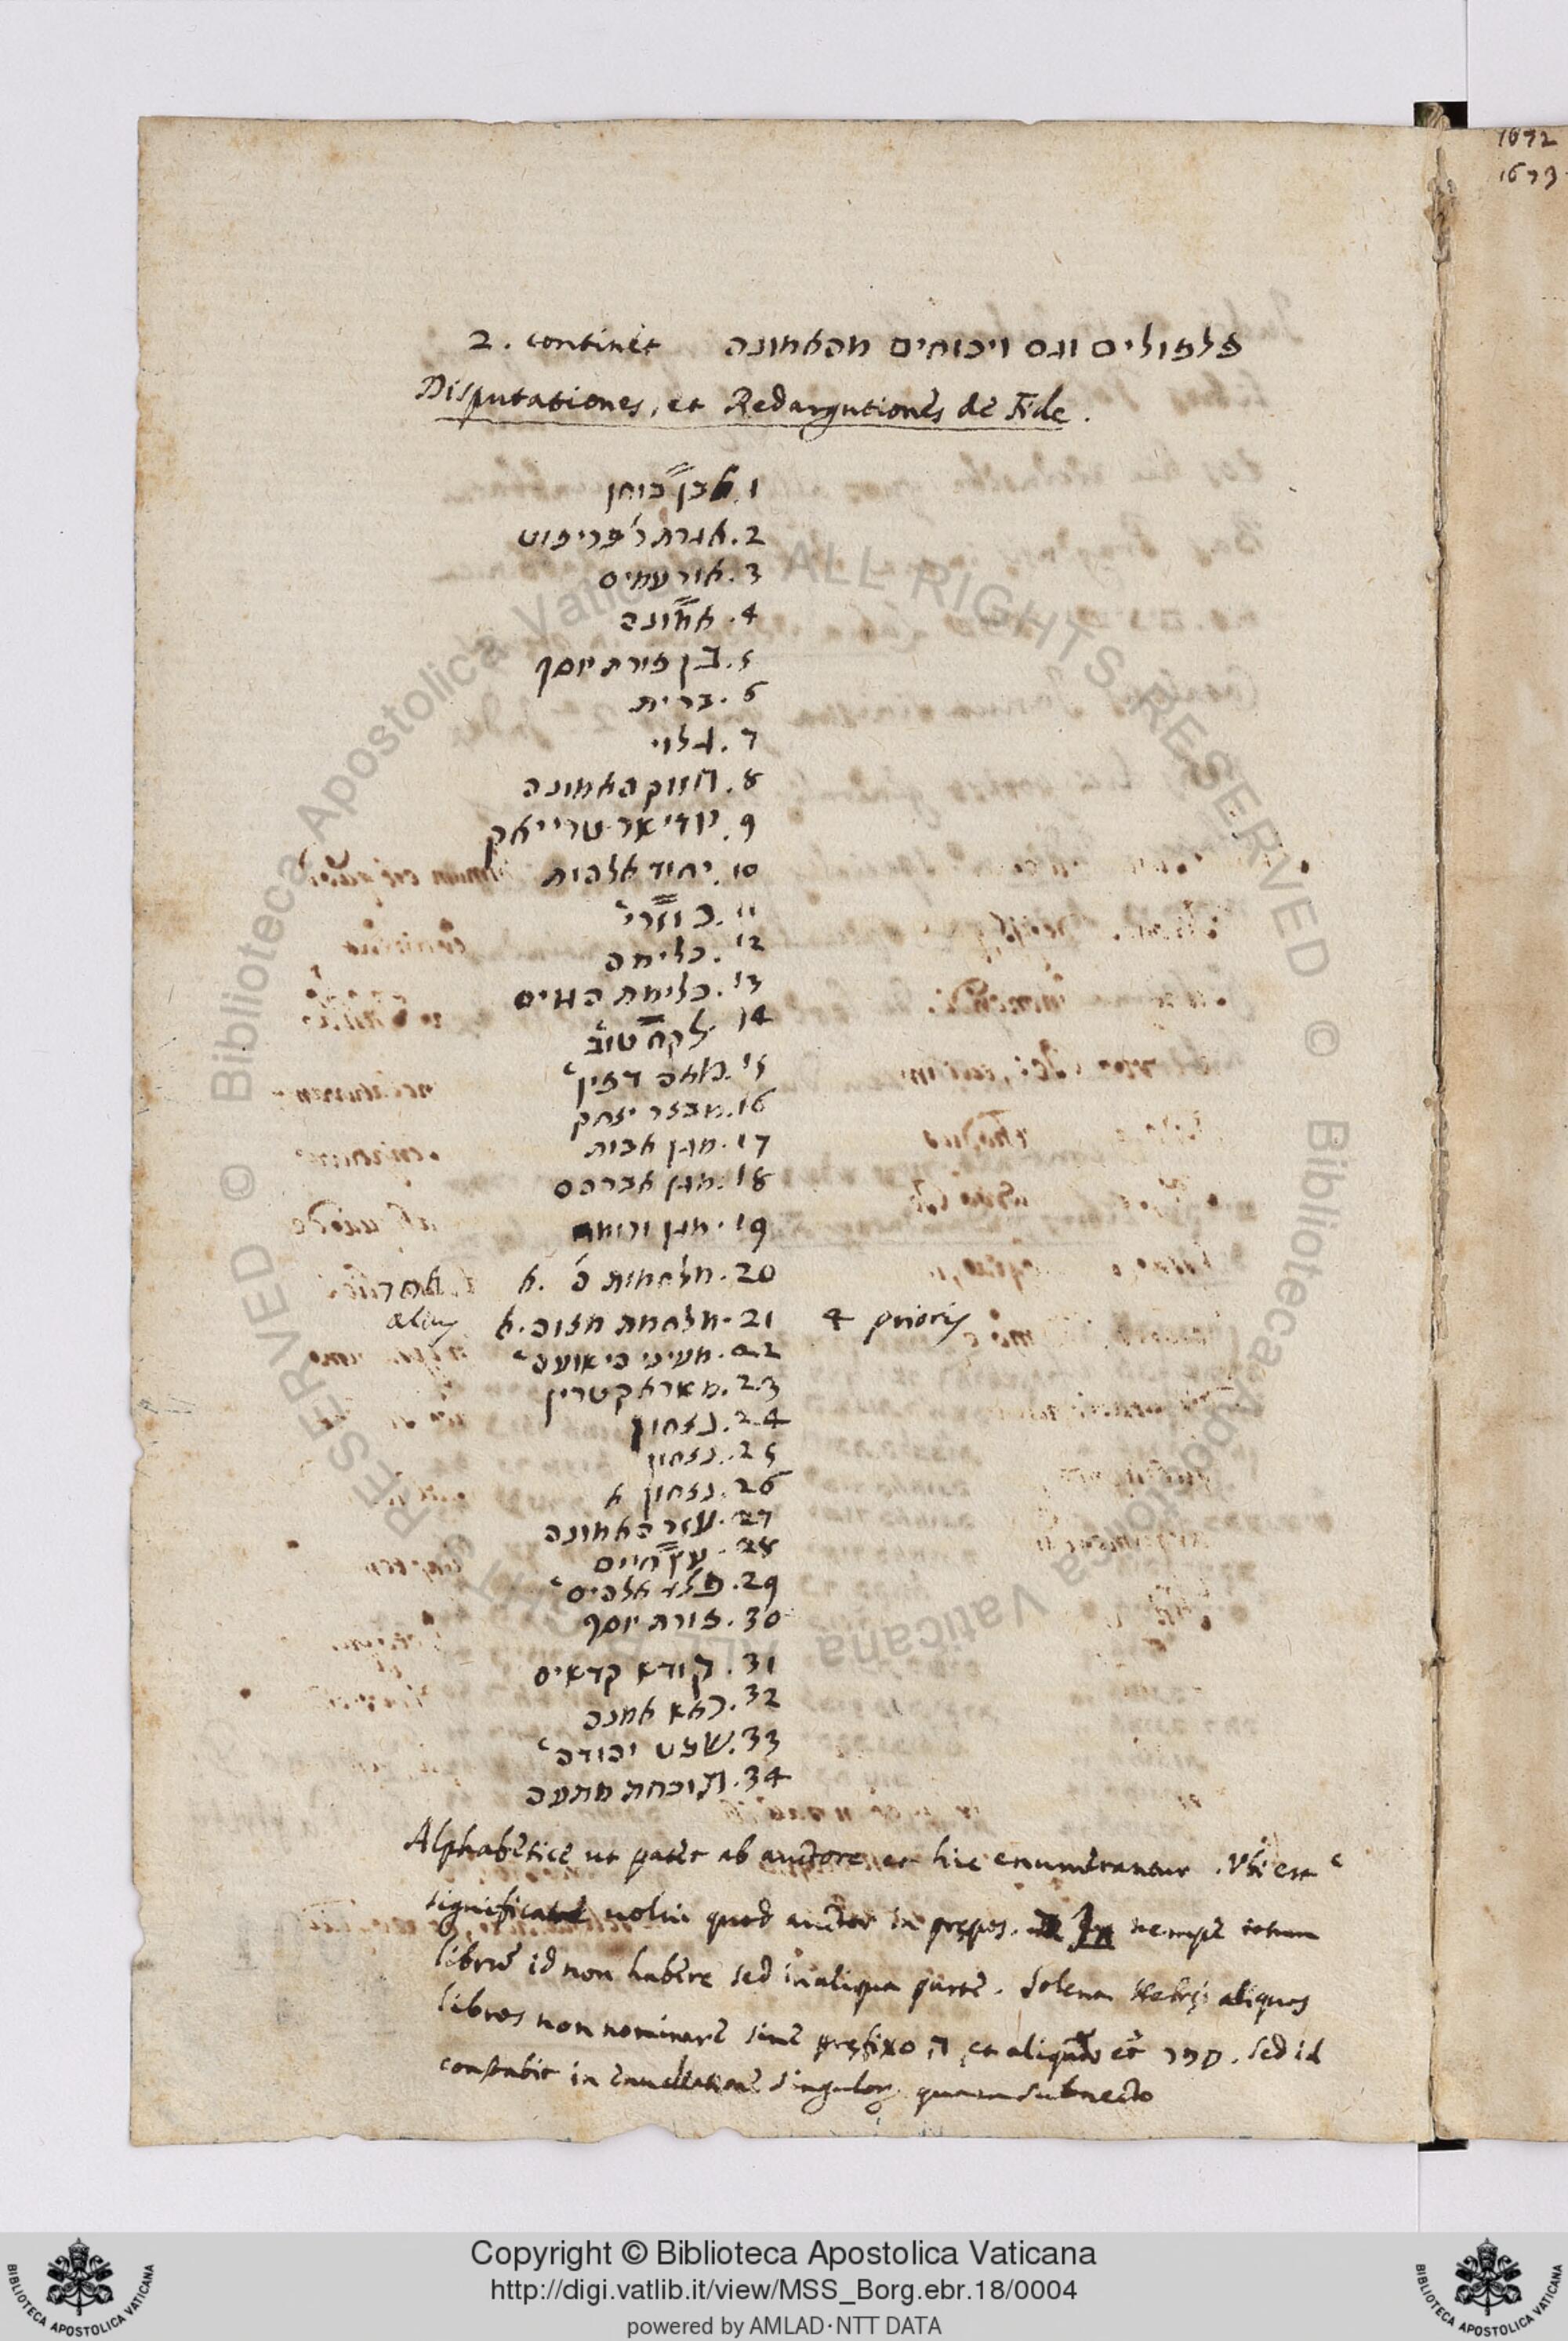 1672
1673
2. continet פלפולים וגם ויכוחים מהאמונה
Disputationes, et Redargutiones de Fide.
1. אבן בוחן
2. אגרת ל פריפוט
3. אור עמים
4. אמונה
5. בן פורת יוסף
6. ברית
7. גלוי
8. חזוק האמונה
9. יודישר טרייאק
10. יחוד אלהות
11. כוזרי
12. כלימה
13. כלימת הגוים
14. לקח טוב
15. מאה דפין
16. מבצר יצחק
17. מגן אבות
18. מגן אברהם
19. מגן ורומח
20. מלחמות ה' . א אחר
21. מלחמת מצוה . א alius 4 prioris
22. מעיני הישועה
23.
24. נצחון
25. נצחון
26. נצחון א
27. עזר האמונה
28. עץ חיים
29. פלד אלהים
30. פורת יוסף
31. קודא קדאים
32. ראש אמנה
33. שבט יהודה
34. תוכחת מתעה
Alphabetice ut patet ab auctore et hic enumerantur. Ubi est c
significare volui quod auctor in prepos. In nempe totum
librum id non habere sed in aliqua parte. Solent Hebrei aliquos
libros non nominare sine prefixo ה, et aliquando et ספר. sed id
constabit in singulorum quam subnecto
Copyright © Biblioteca Apostolica Vaticana
http://digi.vatlib.it/view/MSS_Borg.ebr.18/0004
powered by AMLAD·NTT DATA